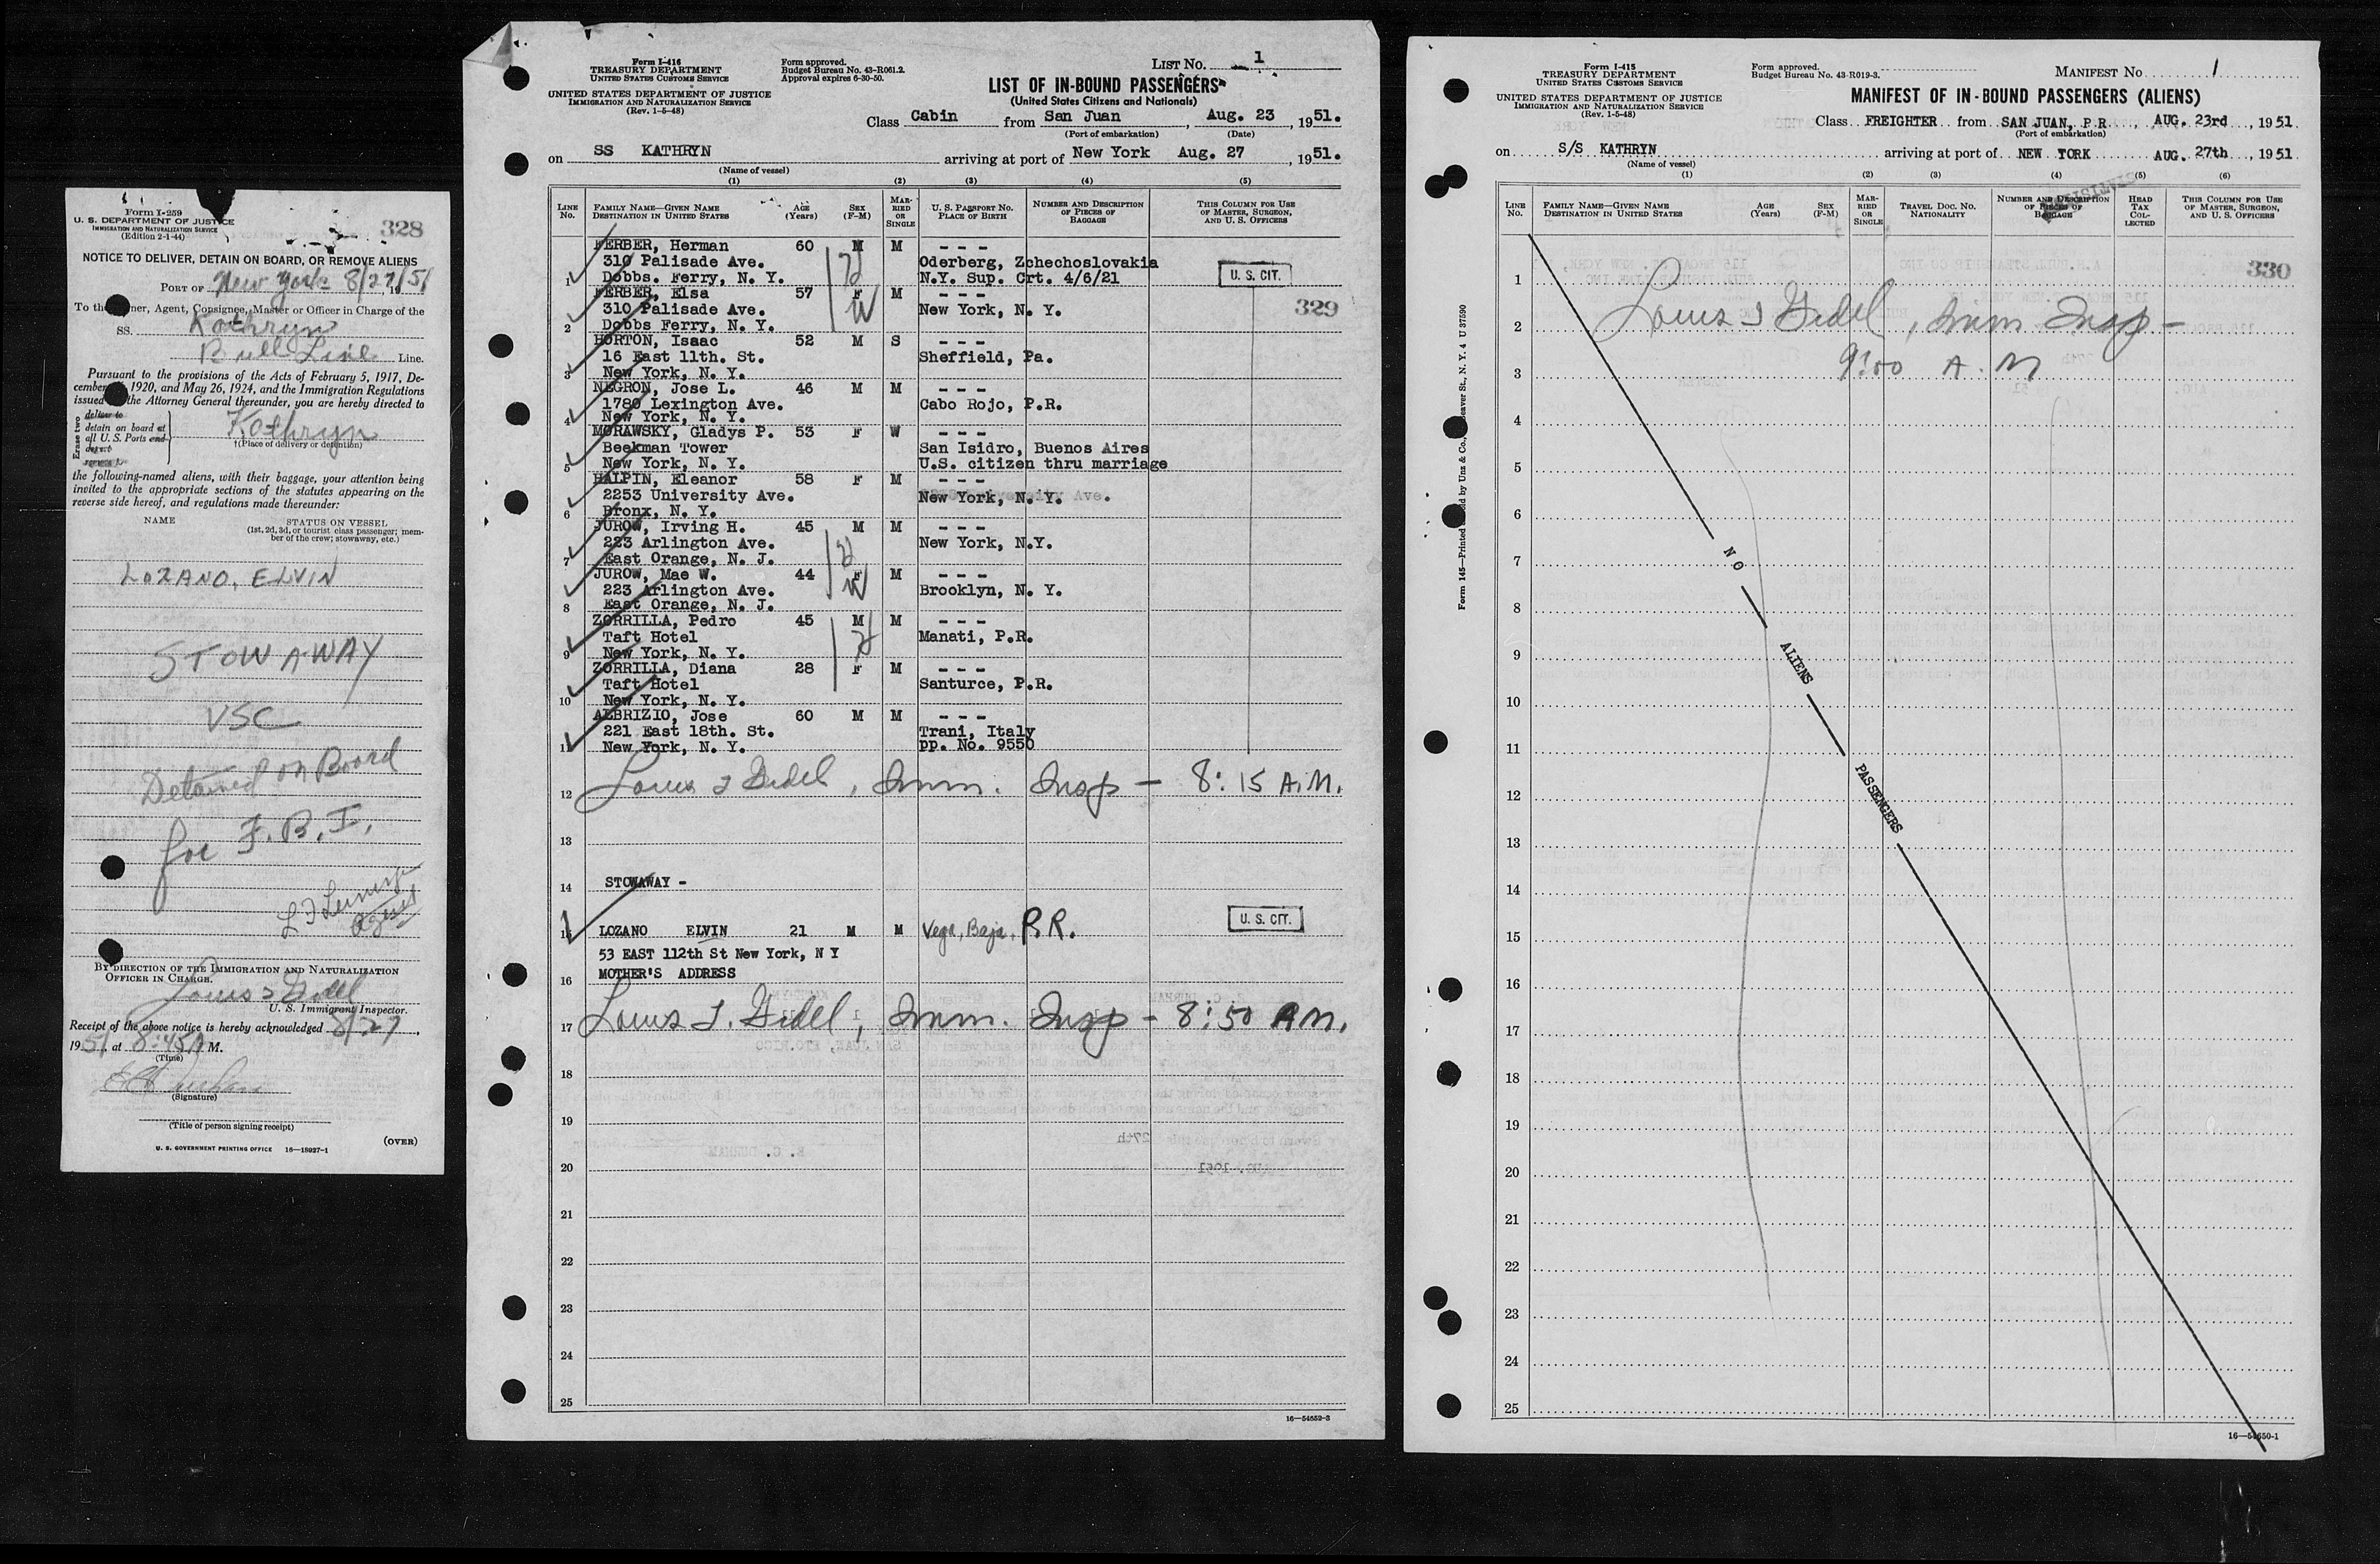 Form I-259
U. S. DEPARTMENT OF JUSTICE
IMMIGRATION AND NATURALIZATION SERVICE
(Edition 2-1-44)
328
NOTICE TO DELIVER, DETAIN ON BOARD, OR REMOVE ALIENS
PORT OF New York 8/27/51
To the Owner, Agent, Consignee, Master or Officer in Charge of the
SS. Kathryn
Bull Line Line.
Pursuant to the provisions of the Acts of February 5, 1917, De-
cember 1920, and May 26, 1924, and the Immigration Regulations
issued the Attorney General thereunder, you are hereby directed to
Erase two
deliver to
detain on board at
all U. S. Ports and
deport
remove to
Kathryn
†(Place of delivery or detention)
the following-named aliens, with their baggage, your attention being
invited to the appropriate sections of the statutes appearing on the
reverse side hereof, and regulations made thereunder:
NAME STATUS ON VESSEL
(1st, 2d, 3d, or tourist class passenger; mem-
ber of the crew; stowaway, etc.)
LOZANO, ELVIN
STOWAWAY
VSC
Detained on Board
for F.B.I.
Agent
BY DIRECTION OF THE IMMIGRATION AND NATURALIZATION
OFFICER IN CHARGE.
Louis J Gidel
U. S. Immigrant Inspector.
Receipt of the above notice is hereby acknowledged 8/27,
1951, at 8:45A M.
(Time)
(Signature)
(Title of person signing receipt)
(OVER)
U. S. GOVERNMENT PRINTING OFFICE 16—18927-1
Form I-416
TREASURY DEPARTMENT
UNITED STATES CUSTOMS SERVICE
UNITED STATES DEPARTMENT OF JUSTICE
IMMIGRATION AND NATURALIZATION SERVICE
(Rev. 1-5-48)
Form approved.
Budget Bureau No. 43-R061.2.
Approval expires 6-30-50.
LIST No. 1
LIST OF IN-BOUND PASSENGERS
(United States Citizens and Nationals)
Class Cabin from San Juan, Aug. 23, 1951.
(Port of embarkation) (Date)
on SS KATHRYN arriving at port of New York Aug. 27, 1951.
(Name of vessel)
(1) (2) (3) (4) (5)
LINE No. FAMILY NAME—GIVEN NAME DESTINATION IN UNITED STATES AGE (Years) SEX (F-M) MARRIED OR SINGLE U. S. PASSPORT NO. PLACE OF BIRTH NUMBER AND DESCRIPTION OF PIECES OF BAGGAGE THIS COLUMN FOR USE OF MASTER, SURGEON, AND U. S. OFFICERS
FERBER, Herman 60 M M - - -
310 Palisade Ave. Oderberg, Zchechoslovakia
1 Dobbs. Ferry, N. Y. N.Y. Sup. Crt. 4/6/21 U. S. CIT.
FERBER, Elsa 57 F M - - -
310 Palisade Ave. New York, N. Y. 329
2 Dobbs Ferry, N. Y.
HORTON, Isaac 52 M S - - -
16 East 11th. St. Sheffield, Pa.
3 New York, N. Y.
NEGRON, Jose L. 46 M M - - -
1780 Lexington Ave. Cabo Rojo, P.R.
4 New York, N. Y.
MORAWSKY, Gladys P. 53 F W - - -
Beekman Tower San Isidro, Buenos Aires
5 New York, N. Y. U.S. citizen thru marriage
HALPIN, Eleanor 58 F M - - -
2253 University Ave. New York, N. Y.
6 Bronx, N. Y.
JUROW, Irving H. 45 M M - - -
223 Arlington Ave. New York, N.Y.
7 East Orange, N. J.
JUROW, Mae W. 44 F M - - -
223 Arlington Ave. Brooklyn, N. Y.
8 East Orange, N. J.
ZORRILLA, Pedro 45 M M - - -
Taft Hotel Manati, P.R.
9 New York, N. Y.
ZORRILLA, Diana 28 F M - - -
Taft Hotel Santurce, P.R.
10 New York, N. Y.
ALBRIZIO, Jose 60 M M - - -
221 East 18th. St. Trani, Italy
11 New York, N. Y. pp. No. 9550
12 Louis J Gidel, Imm. Insp — 8:15 A.M.
13
14 STOWAWAY -
U. S. CIT.
15 LOZANO ELVIN 21 M M Vega, Baja, P.R.
53 EAST 112th St New York, N Y
16 MOTHER'S ADDRESS
17 Louis J. Gidel, Imm. Insp — 8:50 AM.
18
19
20
21
22
23
24
25
16—54652-3
Form I-415
TREASURY DEPARTMENT
UNITED STATES CUSTOMS SERVICE
UNITED STATES DEPARTMENT OF JUSTICE
IMMIGRATION AND NATURALIZATION SERVICE
(Rev. 1-5-48)
Form approved.
Budget Bureau No. 43-R019-3.
MANIFEST No 1
MANIFEST OF IN-BOUND PASSENGERS (ALIENS)
Class FREIGHTER from SAN JUAN, P R, AUG. 23rd, 1951
(Port of embarkation)
on S/S KATHRYN arriving at port of NEW YORK AUG. 27th, 1951
(Name of vessel)
(1) (2) (3) (4) (5) (6)
LINE No. FAMILY NAME—GIVEN NAME DESTINATION IN UNITED STATES AGE (Years) SEX (F-M) MARRIED OR SINGLE TRAVEL DOC. NO. NATIONALITY NUMBER AND DESCRIPTION OF PIECES OF BAGGAGE HEAD TAX COLLECTED THIS COLUMN FOR USE OF MASTER, SURGEON, AND U. S. OFFICERS
330
1
2 Louis J Gidel, Imm Insp —
3 9:00 A.M
4
5
6
7 NO
8
9 ALIENS
10
11
12 PASSENGERS
13
14
15
16
17
18
19
20
21
22
23
24
25
16—54650-1